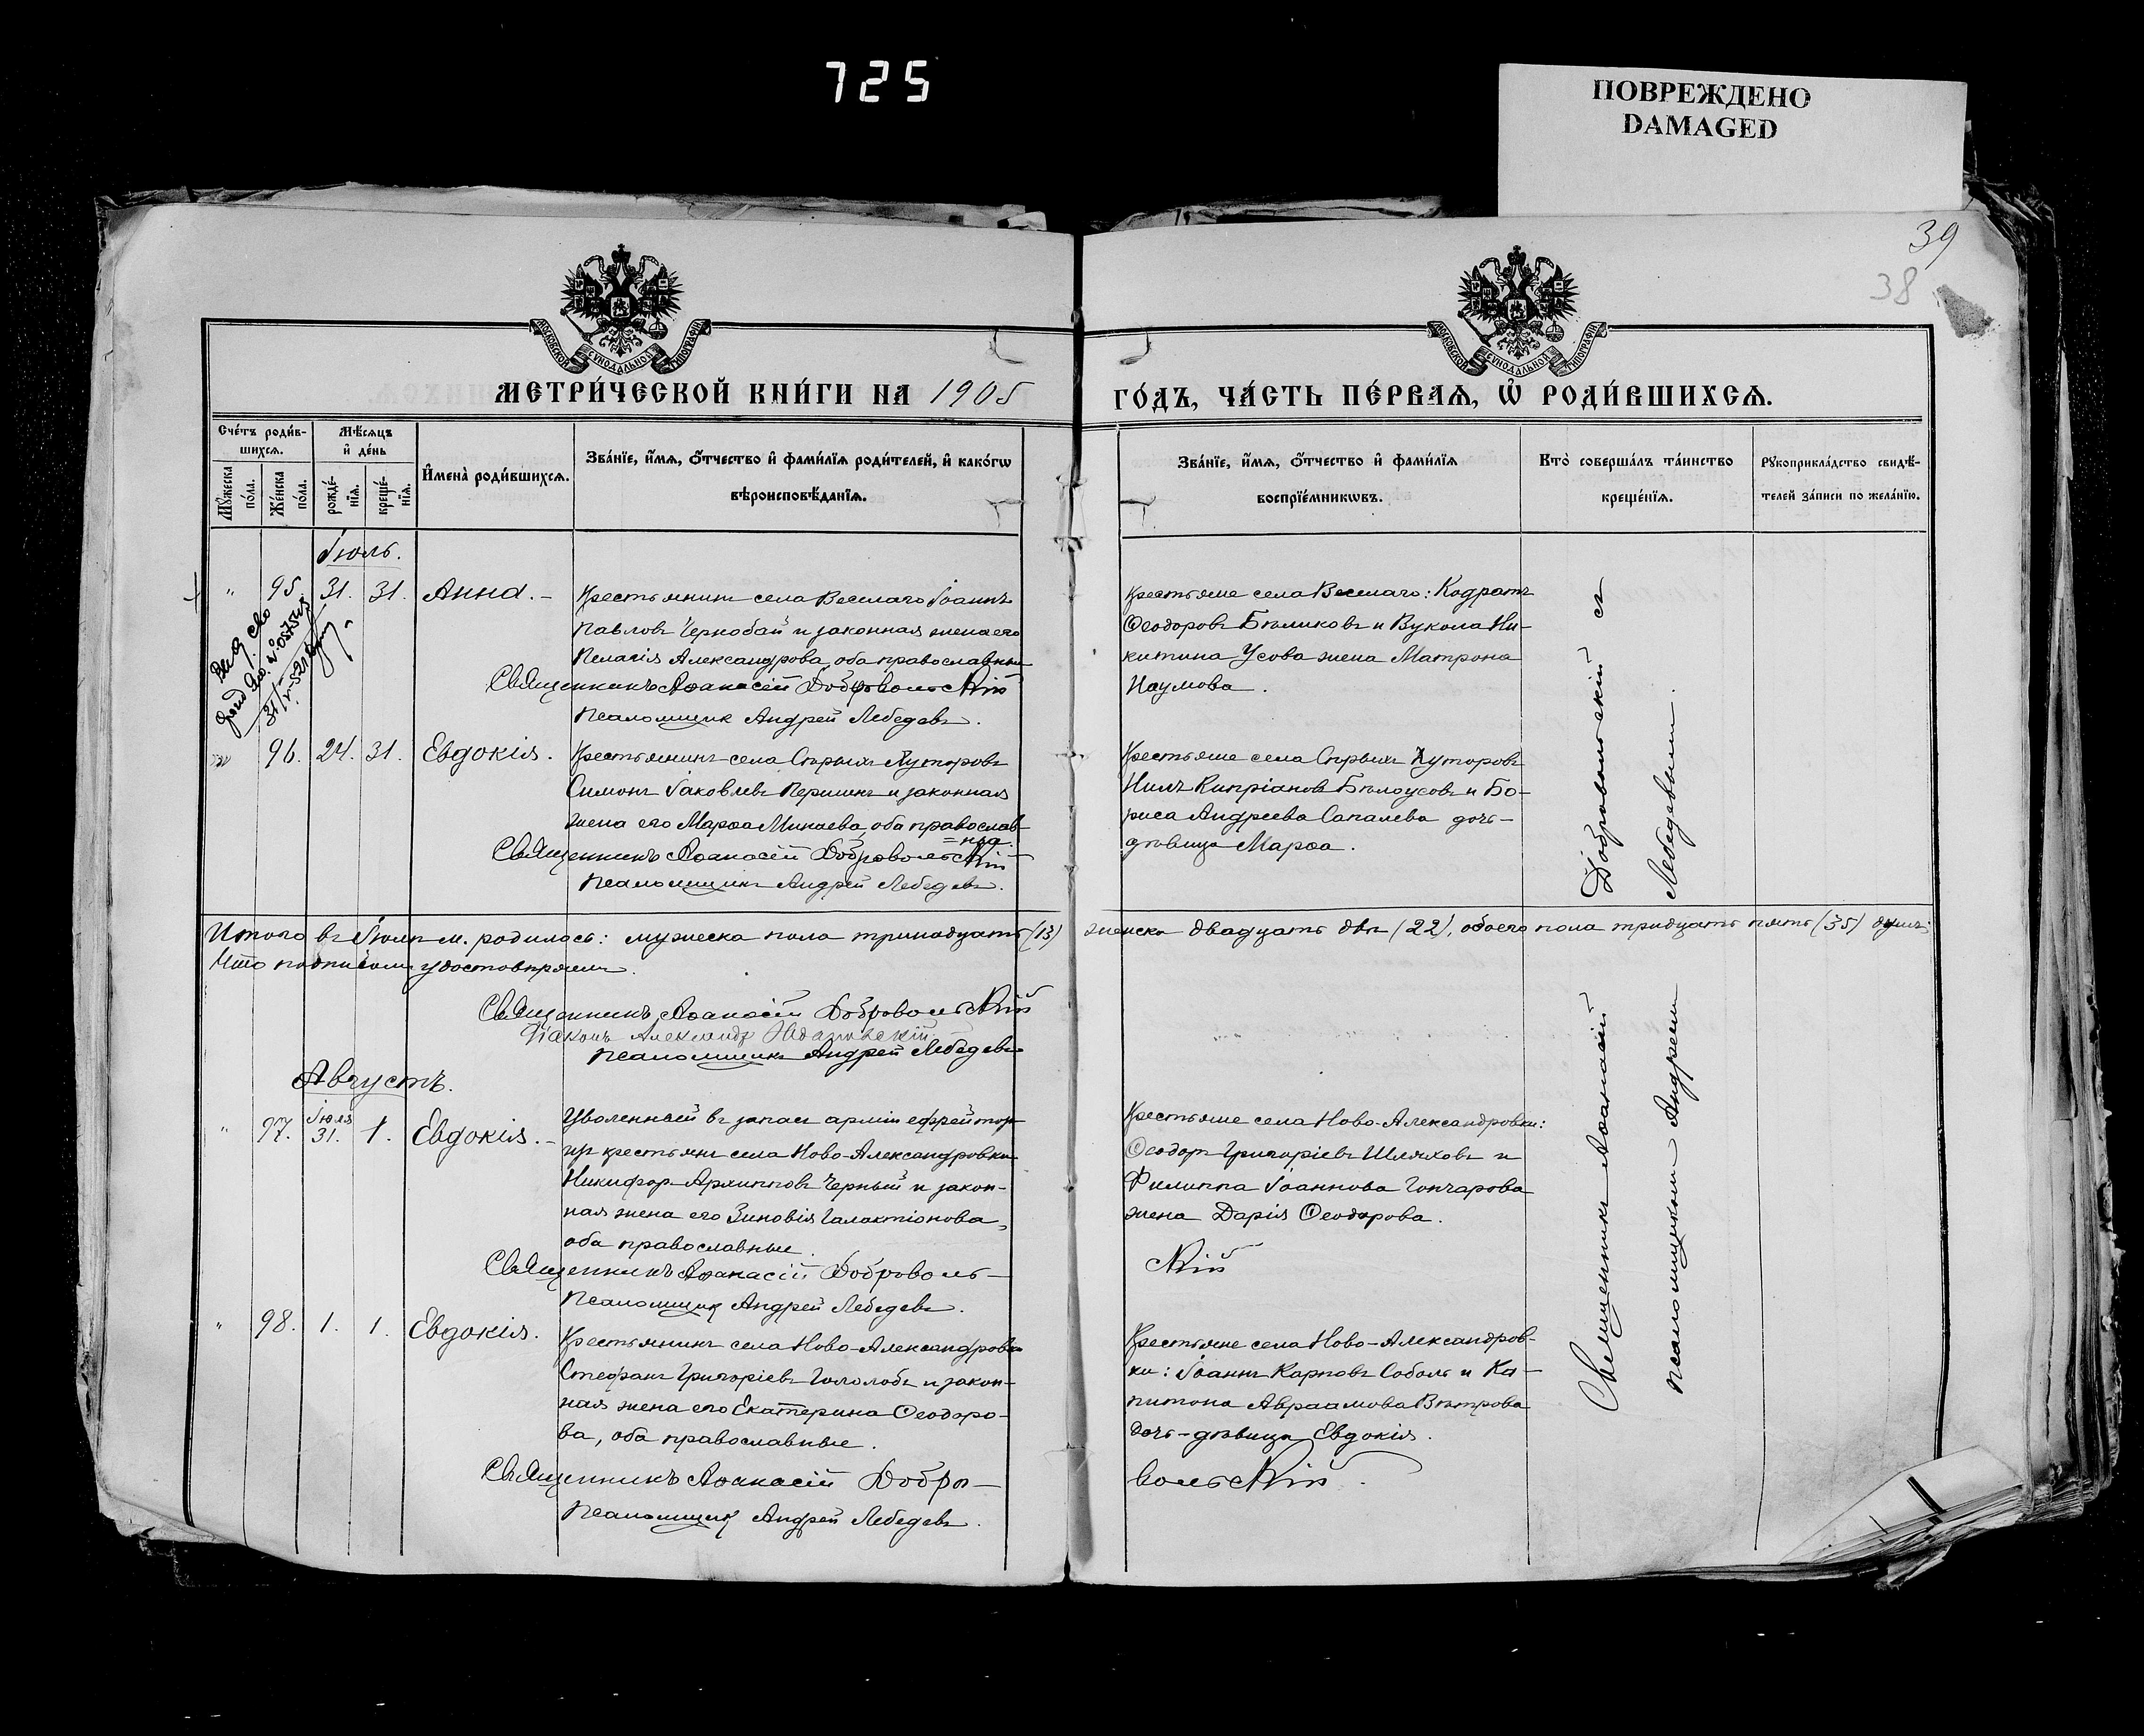 725
ПОВРЕЖДЕНО
DAMAGED
39
38
МОСКОВСКОЙ СѴНОДАЛЬНОЙ ТИПОГРАФІИ
МОСКОВСКОЙ СѴНОДАЛЬНОЙ ТИПОГРАФІИ
МЕТРИ́ЧЕСКОЙ КНИ́ГИ НА 1905 ГО́ДЪ, ЧА́СТЬ ПЕ́РВАѦ, Ѡ҆ РОДИ́ВШИХСѦ.
Сче́тъ роди́в-
шихсѧ.
Мꙋ́жеска по́ла.
Же́нска по́ла.
Мѣ́сѧцъ и҆ де́нь
рожде́-
нїѧ.
креще́-
нїѧ.
И҆мена̀ роди́вшихсѧ.
Зва́нїе, и҆́мѧ, ѻ҆́тчество и҆ фами́лїѧ роди́телей, и҆ како́гѡ
вѣроисповѣ́данїѧ.
Зва́нїе, и҆́мѧ, ѻ҆́тчество и҆ фами́лїѧ
воспрїе́мникѡвъ.
Кто̀ соверша́лъ та́инство
креще́нїѧ.
Рꙋкоприкла́дство свидѣ́-
телей за́писи по жела́нїю.
Іюль.
" 95. 31. 31. Анна. -
Крестьянинъ села Веселаго Іоаннъ
Павловъ Чернобай и законная жена его
Пелагія Александрова, оба православные
Священникъ Аѳанасій Добровольскій
Псаломщик Андрей Лебедевъ.
Крестьяне села Веселаго: Кодратъ
Ѳеодоровъ Бѣликовъ и Вукола Ни-
китина Усова жена Матрона
Наумова.
96. 24. 31. Евдокія.
Крестьянинъ села Сѣрыхъ Хуторовъ
Симонъ Іаковлевъ Першинъ и законная
жена его Марѳа Минаева, оба православ-
=ные.
Священникъ Аѳанасій Добровольскій
Псаломщикъ Андрей Лебедевъ.
Крестьяне села Сѣрыхъ Хуторовъ
Нилъ Кипріановъ Бѣлоусовъ и Бо-
риса Андреева Сапалева дочь-
дѣвица Марѳа.
Итого въ Іюлѣ м. родилось: мужеска пола тринадцать (13) женска двадцать двѣ (22), обоего пола тридцать пять (35) душъ;
Что подписом удостовѣряемъ.
Священникъ Аѳанасій Добровольскій
Діаконъ Александръ
Псаломщикъ Андрей Лебедевъ
Августъ.
" 97. Іюля 31. 1. Евдокія. -
Уволенный въ запас арміи ефрейтор
изъ крестьянъ села Ново-Александровки
Никифор Архипповъ Черный и закон-
ная жена его Зиновія Галактіонова,
оба православные.
Священникъ Аѳанасій Доброволь-
Псаломщик Андрей Лебедевъ.
Крестьяне села Ново-Александровки:
Ѳеодоръ Григоріевъ Шляховъ и
Филиппа Іоаннова Гончарова
жена Дарія Ѳеодорова.
скій
" 98. 1. 1. Евдокія.
Крестьянинъ села Ново-Александровки
Стефанъ Григоріевъ Гололобъ и закон-
ная жена его Екатерина Ѳеодоро-
ва, оба православные.
Священникъ Аѳанасій Добро-
Псаломщик Андрей Лебедевъ.
Крестьяне села Ново-Александров-
ки: Іоаннъ Карповъ Соболь и Ка-
питона Авраамова Вѣтрова
дочь-дѣвица Евдокія.
вольскій.
Священникъ Аѳанасій Добровольскій съ
псаломщикомъ Андреемъ Лебедевымъ.